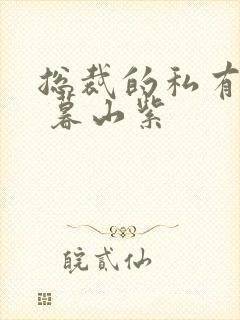 总裁的私有
暮山紫
皖贰仙